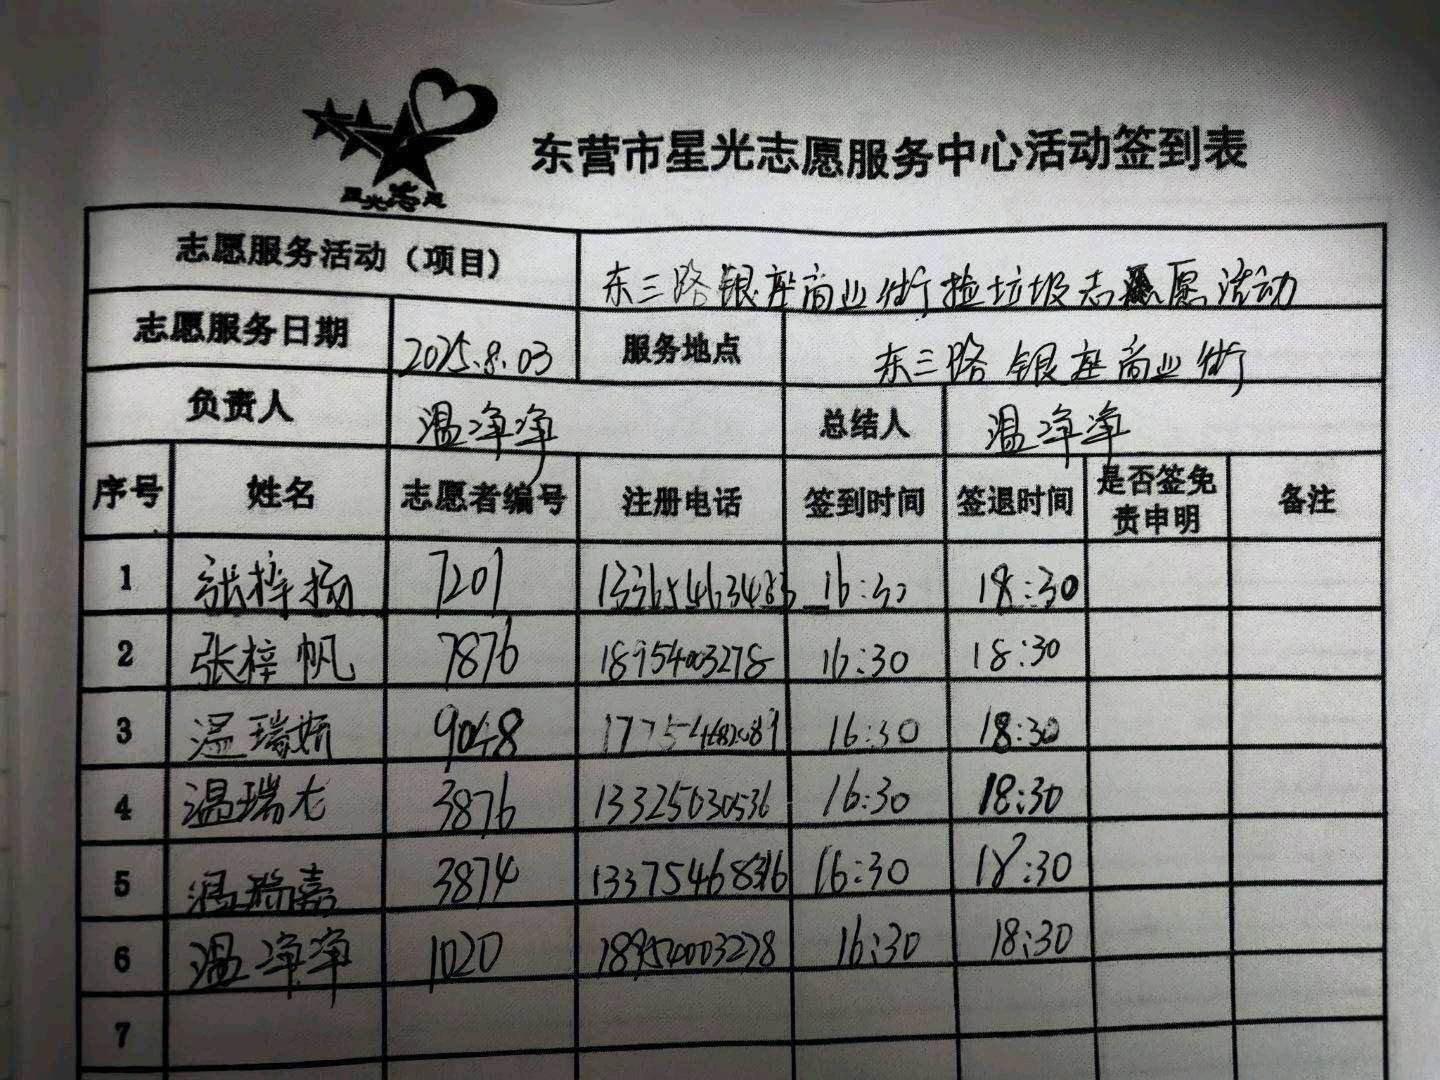 星光志愿
东营市星光志愿服务中心活动签到表
志愿服务活动（项目） 东三路银座商业街捡垃圾志愿活动
志愿服务日期 2025.8.03 服务地点 东三路银座商业街
负责人 温净净 总结人 温净净
序号 姓名 志愿者编号 注册电话 签到时间 签退时间 是否签免责申明 备注
1 张梓扬 7201 16:30 18:30
2 张梓帆 7876 18954003278 16:30 18:30
3 温瑞娇 9048 17754682089 16:30 18:30
4 温瑞 3876 13325030536 16:30 18:30
5 温瑞嘉 3874 13375468316 16:30 18:30
6 温净净 1020 18954003278 16:30 18:30
7